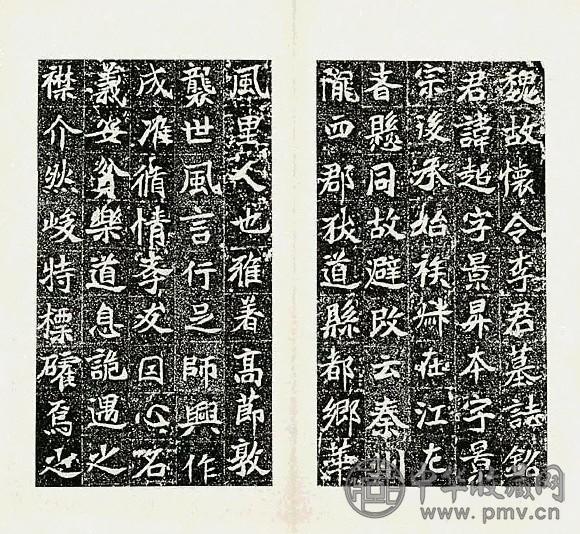 魏故懷令李君墓誌銘
君諱超字景昇本字景
宗後承始族叔在江左
者懸同故避改云秦州
隴西郡狄道縣都鄉華
風里人也雅著高節敦
襲世風言行足師興作
成准循情孝友因心名
義安貧樂道息詭遇之
襟介峻特標礭焉之
中华收藏网
www.pmv.cn